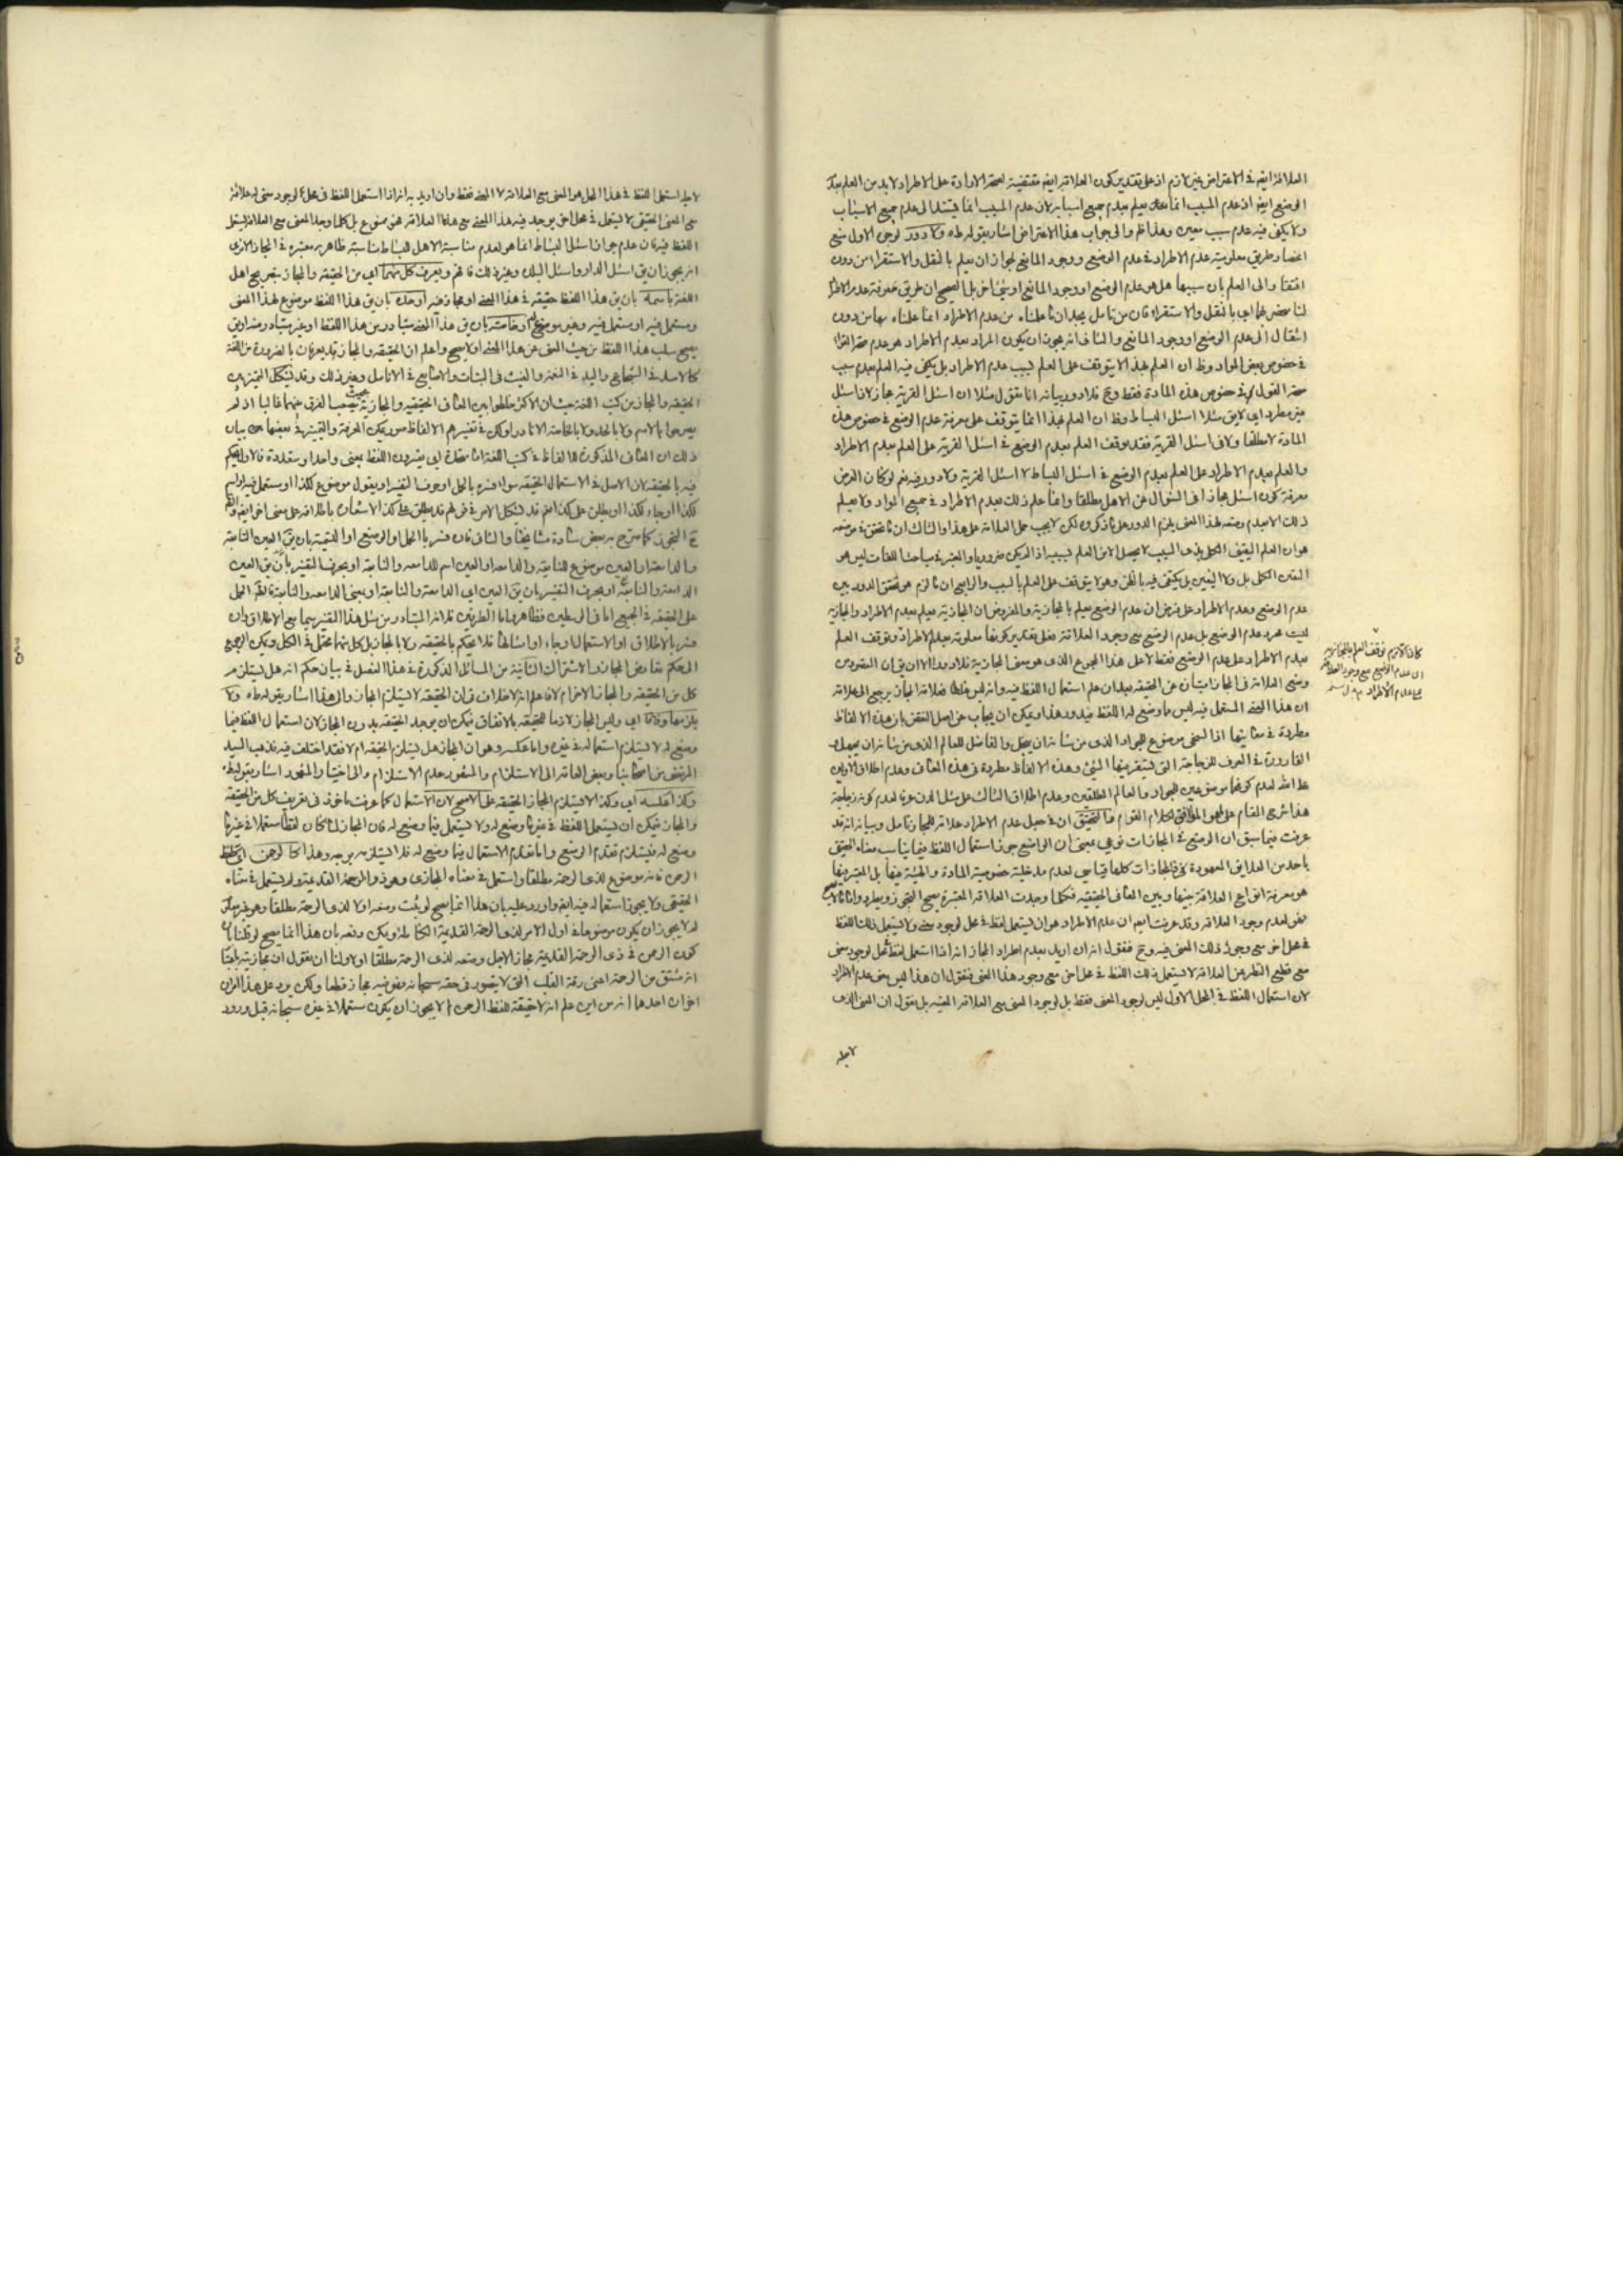 العلاقة ايضا في الاعتراض غير لازم اذ على تقدير كون العلاقة ايضا مقتضية لصحة الارادة على الاطراد لا بد من العلم بعدم
الوضع ايضا اذ عدم المسبب انما يعلم بعدم جميع اسبابه لان عدم المسبب انما يستند الى عدم جميع الاسباب
ولا يكفي فيه عدم سبب معين وهذا ظ والى جواب هذا الاعتراض اشار بقوله طه ولا دور لوجهين الاول منع
انحصار طريق معلومية عدم الاطراد في عدم الوضع ووجود المانع لجواز ان يعلم بالنقل والاستقراء من دون
التفات الى العلم بان سببها هل هو عدم الوضع او وجود المانع او شيء اخر بل الصحيح ان طريق معرفة عدم الاطراد
لنا منحصر اي بالنقل والاستقراء فان من تامل يجد ان ما علمناه من عدم الاطراد انما علمناه بهما من دون
انتقال الى عدم الوضع او وجود المانع والثاني انه يجوز ان يكون المراد بعدم الاطراد هو عدم صحة القول
في خصوص بعض المواد وظ ان العلم بهذا لا يتوقف على العلم بسبب عدم الاطراد بل يكفي فيه العلم بعدم سبب
صحة القول في خصوص هذه المادة فقط وح فلا دور بيانه انا نقول مثلا ان اسئل القرية مجاز لان اسئل
غير مطرد اي لا يق مثلا اسئل البساط وظ ان العلم بهذا انما يتوقف على معرفة عدم الوضع في خصوص هذه
المادة لا مطلقا ولا في اسئل القرية فقد توقف العلم بعدم الوضع في اسئل القرية على العلم بعدم الاطراد
والعلم بعدم الاطراد على العلم بعدم الوضع في اسئل البساط لا اسئل القرية ولا دور فيه نعم لو كان الغرض
معرفة كون اسئل مجازا في السؤال عن الاهل مطلقا وانما علم ذلك بعدم الاطراد في جميع المواد ولا يعلم
هو ان العلم اليقيني الكلي بذي السبب لا يحصل الا من العلم بسببه اذا لم يكن ضروريا والمعتبر في مباحث اللغات ليس هو
اليقين الكلي بل ولا اليقين بل يكتفى فيه بالظن وهو لا يتوقف على العلم بالسبب والرابع ان ما لزم هو تحقق الدور بين
عدم الوضع وعدم الاطراد على فرض ان عدم الوضع يعلم بالمجازية والمفروض ان المجازية يعلم بعدم الاطراد والمجازية
ليست مجرد عدم الوضع بل عدم الوضع مع وجود العلاقة فعلى تقدير كونها معلومة بعدم الاطراد وتوقف العلم
بعدم الاطراد على عدم الوضع فقط لا على هذا المجموع الذي هو معنى المجازية فلا دور الا ان يق ان المقصود من
وضع العلاقة في المجاز امتيازه عن الحقيقة بعد ان علم استعمال اللفظ فيه وانه ليس غلطا فعلاقة المجاز يرجع الى علاقة
ان هذا المعنى المستعمل فيه ليس ما وضع له اللفظ فيدور هذا ويمكن ان يجاب عن اصل النقض بان هذه الالفاظ
مطردة في معانيها اذ السخي موضوع للجواد الذي من شانه ان يبخل والفاضل للعالم الذي من شانه ان يجهل و
القارورة في العرف للزجاجة التي يستقر فيها الشيء وهذه الالفاظ مطردة في هذه المعاني وعدم اطلاق الاولين
على الله لعدم كونهما موضوعين للجواد والعالم المطلقين وعدم اطلاق الثالث على مثل الدن عرفا لعدم كونه زجاجة
هذا شرح المقام على نحو الموافق لكلام القوم والتحقيق ان في جعل عدم الاطراد علاقة للمجاز تامل وبيانه انه قد
عرفت فيما سبق ان الوضع في المجازات نوعي بمعنى ان الواضع جوز استعمال اللفظ فيما يناسب معناه الحقيقي
باحد من العلايق المعهودة فالمجازات كلها قياسي لعدم مدخلية خصوصية المادة والهيئة فيها بل المعتبر فيها
هو معرفة انواع العلاقة بينها وبين المعاني الحقيقية فكلما وجدت العلاقة المعتبرة يصح التجوز ويطرد
فهو لعدم وجود العلاقة وقد عرفت ايضا ان عدم الاطراد هو ان يستعمل لفظ في محل لوجود معنى ولا يستعمل ذلك اللفظ
في محل اخر مع وجود ذلك المعنى فيه وح فنقول انه ان اريد بعدم اطراد المجاز انه اذا استعمل لفظ لمحل لوجود معنى
مع قطع النظر عن العلاقة لا يستعمل ذلك اللفظ في محل اخر مع وجود هذا المعنى فنقول ان هذا ليس معنى عدم الاطراد
لان استعمال اللفظ في المحل الاول ليس لوجود المعنى فقط بل لوجود المعنى مع العلاقة المعينة بل نقول ان المعنى الذي
لاجله
كان اللازم توقف العلم بالمجازية
اي عدم الوضع مع وجود العلاقة
على عدم الاطراد
لاجله استعمل اللفظ في هذا المحل هو المعنى مع العلاقة لا المعنى فقط وان اريد به انه اذا استعمل اللفظ في محل لوجود معنى له علاقة
مع المعنى الحقيقي لا يستعمل في محل اخر يوجد فيه هذا المعنى مع هذا العلاقة فهو ممنوع بل كلما وجد المعنى مع العلاقة يستعمل
اللفظ فيه فان عدم جواز اسئل البساط انما هو لعدم مناسبة الاهل للبساط مناسبة ظاهرة معتبرة في المجاز الا ترى
انه يجوز ان يق اسئل الدار واسئل البلد وغير ذلك فافهم ويعرف كل منهما اي من الحقيقة والمجاز بتصريح اهل
اللغة باسمه بان يق هذا اللفظ حقيقة في هذا المعنى او مجاز فيه او حده بان يق هذا اللفظ موضوع لهذا المعنى
ومستعمل فيه او مستعمل فيه وغير موضوع له او خاصته بان يق هذا المعنى متبادر من هذا اللفظ او غير متبادر منه او يق
يصح سلب هذا اللفظ من حيث المعنى عن هذا المعنى او لا يصح واعلم ان الحقيقة والمجاز قد يعرفان بالضرورة من اللغة
كالاسد في الشجاع واليد في النعمة والغيث في النبات والاصابع في الانامل وغير ذلك وقد يشكل التمييز بين
الحقيقة والمجاز من كتب اللغة حيث ان الاكثر خلطوا بين المعاني الحقيقية والمجازية بحيث يصعب الفرق بينهما غالبا اذ لم
يصرحوا بالاسم ولا بالحد ولا بالخاصة الا نادرا ولكن في تفسيرهم الالفاظ صور يمكن المعرفة والتمييز في بعضها
ذلك ان المعاني المذكورة للالفاظ في كتب اللغة اما متحدة اي يفسرون اللفظ بمعنى واحد او متعددة فالاول يحكم
فيه بالحقيقة لان الاصل في الاستعمال الحقيقة سواء فسره بالحمل او حرف التفسير او يقول موضوع لكذا او مستعمل فيه او اسم
لكذا او جاء لكذا او يطلق على كذا نعم قد يشكل الامر في قولهم قد يطلق على كذا لاشعاره باطلاقه على معنى اخر ايضا
ح التجوز كما صرح به بعض سادة مشايخنا والثاني فان فسر بالحمل او الوضع او التسمية بان يق العين النابعة
والدامعة او العين موضوع للنابعة والدامعة او العين اسم للدامعة والنابعة او بحرف التفسير بان يق العين
على الحقيقة في الجميع اما في الوسطين فظاهر واما الطرفين فلانه المتبادر من مثل هذا التفسير سيما مع الاطلاق وان
فسر بالاطلاق او الاستعمال او جاء او امثالها فلا يحكم بالحقيقة ولا بالمجاز بل كل منهما محتمل في الكل ويمكن الرجوع
الى حكم تعارض المجاز والاشتراك الثانية من المسائل المذكورة في هذا الفصل في بيان حكم انه هل يستلزم
كل من الحقيقة والمجاز الاخر ام لا فاعلم انه لا خلاف في ان الحقيقة لا يستلزم المجاز والى هذا اشار بقوله طه ولا
يلزمها وفاقا اي وليس المجاز لازما للحقيقة بالاتفاق فيمكن ان يوجد الحقيقة بدون المجاز لان استعمال اللفظ فيما
وضع له لا يستلزم استعماله في غيره واما عكسه وهو ان المجاز هل يستلزم الحقيقة ام لا فقد اختلف فيه فذهب السيد
المرتضى من اصحابنا وبعض العامة الى الاستلزام والمشهور عدم الاستلزام والى اختيار المشهور اشار بقوله طه
وكذا عكسه اي وكذا لا يستلزم المجاز الحقيقة على الاصح لان الاستعمال كما عرفت ماخوذ في تعريف كل من الحقيقة
والمجاز فيمكن ان يستعمل اللفظ في غير ما وضع له ولا يستعمل فيما وضع له فان المجاز لما كان لفظا مستعملا في غير ما
وضع له فيستلزم تقدم الوضع واما تقدم الاستعمال فيما وضع له فلا يستلزمه بوجه وهذا كالرحمن اي لفظ
الرحمن فانه موضوع لذي الرحمة مطلقا واستعمل في معناه المجازي وهو ذو الرحمة القديمة ولم يستعمل في معناه
الحقيقي ولا يجوز استعماله فيه ايضا واورد عليه بان هذا انما يصح لو ثبت وضعه اولا لذي الرحمة مطلقا وهو غير مسلم
لم لا يجوز ان يكون موضوعا في اول الامر لذي الرحمة القديمة ويمكن دفعه بان هذا انما يصح لو قلنا بان
كون الرحمن في ذي الرحمة القديمة مجاز لاجل وضعه لذي الرحمة مطلقا اولا ولنا ان نقول ان مجازيته باعتبار
انه مشتق من الرحمة اعني رقة القلب التي لا يتصور في حقه سبحانه فهو فيه مجاز قطعا ولكن يرد على هذا ايرادان
اخران احدهما انه من اين علم انه لا حقيقة للفظ الرحمن لم لا يجوز ان يكون مستعملا في غيره سبحانه قبل ورود